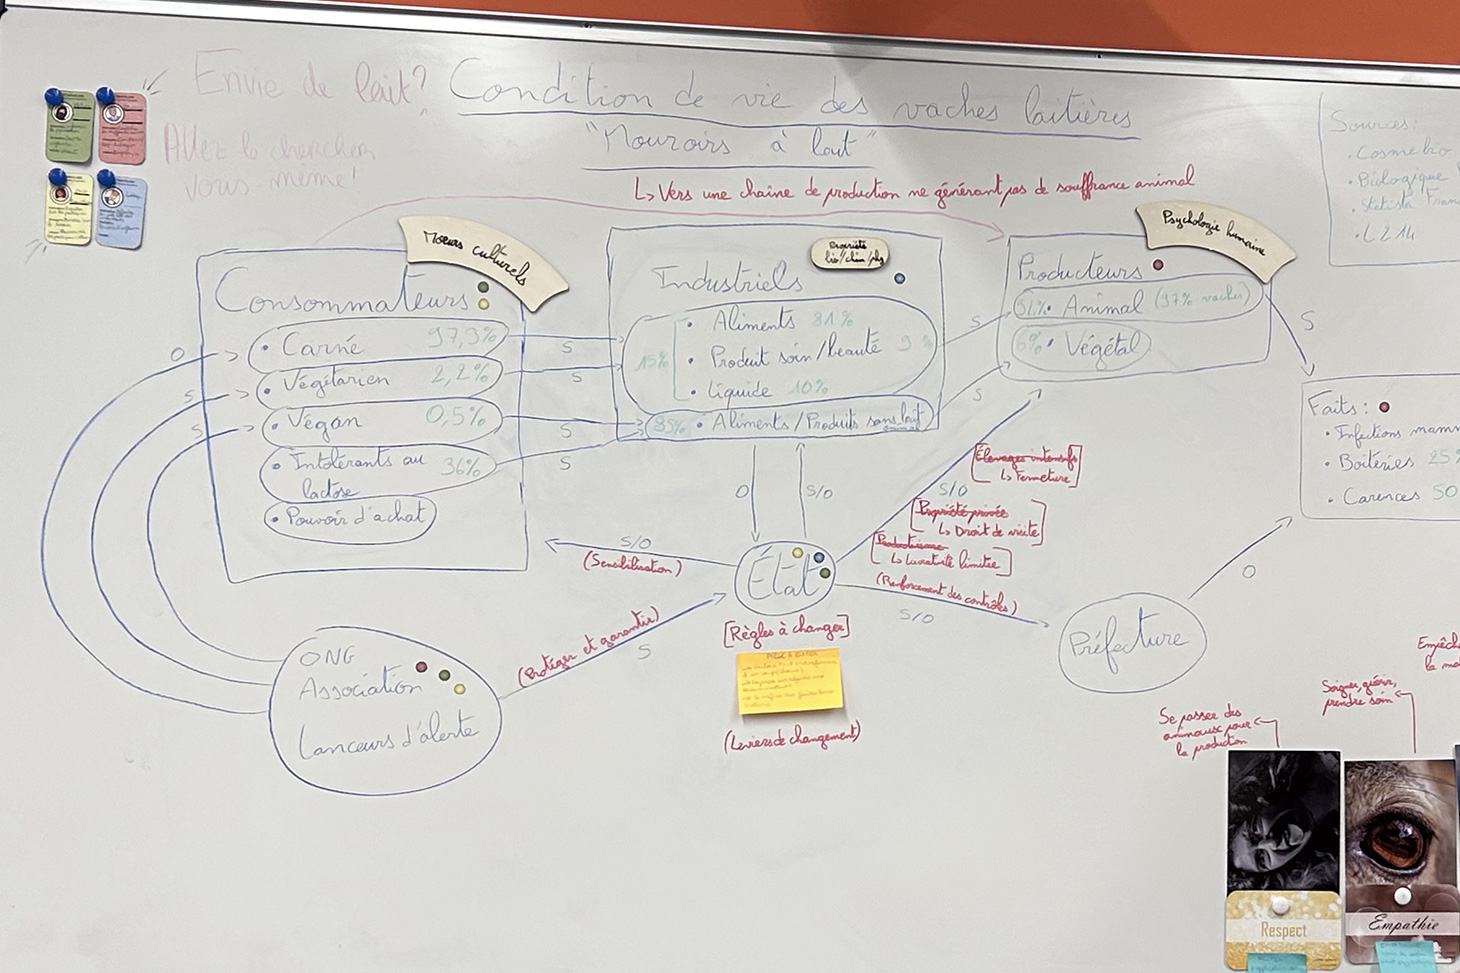 Envie de lait?
Allez le chercher
vous-même!
Condition de vie des vaches laitières
"Mouroirs à lait"
↳ Vers une chaîne de production ne générant pas de souffrance animal
Sources:
• Cosmebio
• Biologique
• Statista Fran
• L214
Moeurs culturels
Consommateurs
• Carné 97,3%
• Végétarien 2,2%
• Végan 0,5%
• Intolérants au
lactose 36%
• Pouvoir d'achat
O
S
S
S
S
S
S
Propriété
bio/chim/phy
Industriels
15%
• Aliments 81%
• Produit soin/beauté 9%
• Liquide 10%
85% • Aliments/Produits sans lait
S
S
Psychologie humaine
Producteurs
• Animal (97% vaches)
6% • Végétal
S
Faits:
• Infections mamm
• Boiteries 25%
• Carences 50
O
S/O
S/O
(Sensibilisation)
État
S/O
[Élevages intensifs
↳ Fermeture]
[Propriété privée
↳ Droit de visite]
[Productivisme
↳ Lucrativité limitée]
(Renforcement des contrôles)
S/O
Préfecture
O
(Protéger et garantir)
S
[Règles à changer]
(Leviers de changement)
ONG
Association
Lanceurs d'alerte
Se passer des
animaux pour
la production
Soigner, guérir,
prendre soin
Empêch
la ma
Respect
Empathie